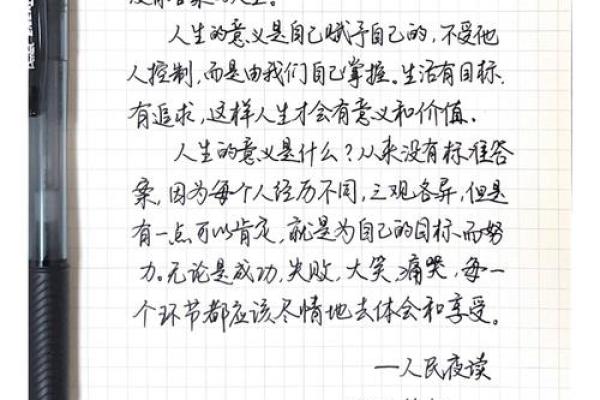 人生的意义是自己赋予自己的,不受他
人控制,而是由我们自己掌握。生活有目标,
有追求,这样人生才会有意义和价值。
人生的意义是什么?从来没有标准答
案,因为每个人经历不同,三观各异,但是
有一点可以肯定,就是为自己的目标而努
力。无论是成功,失败,大笑,痛哭,每一
个环节都应该尽情地去体会和享受。
—人民夜读